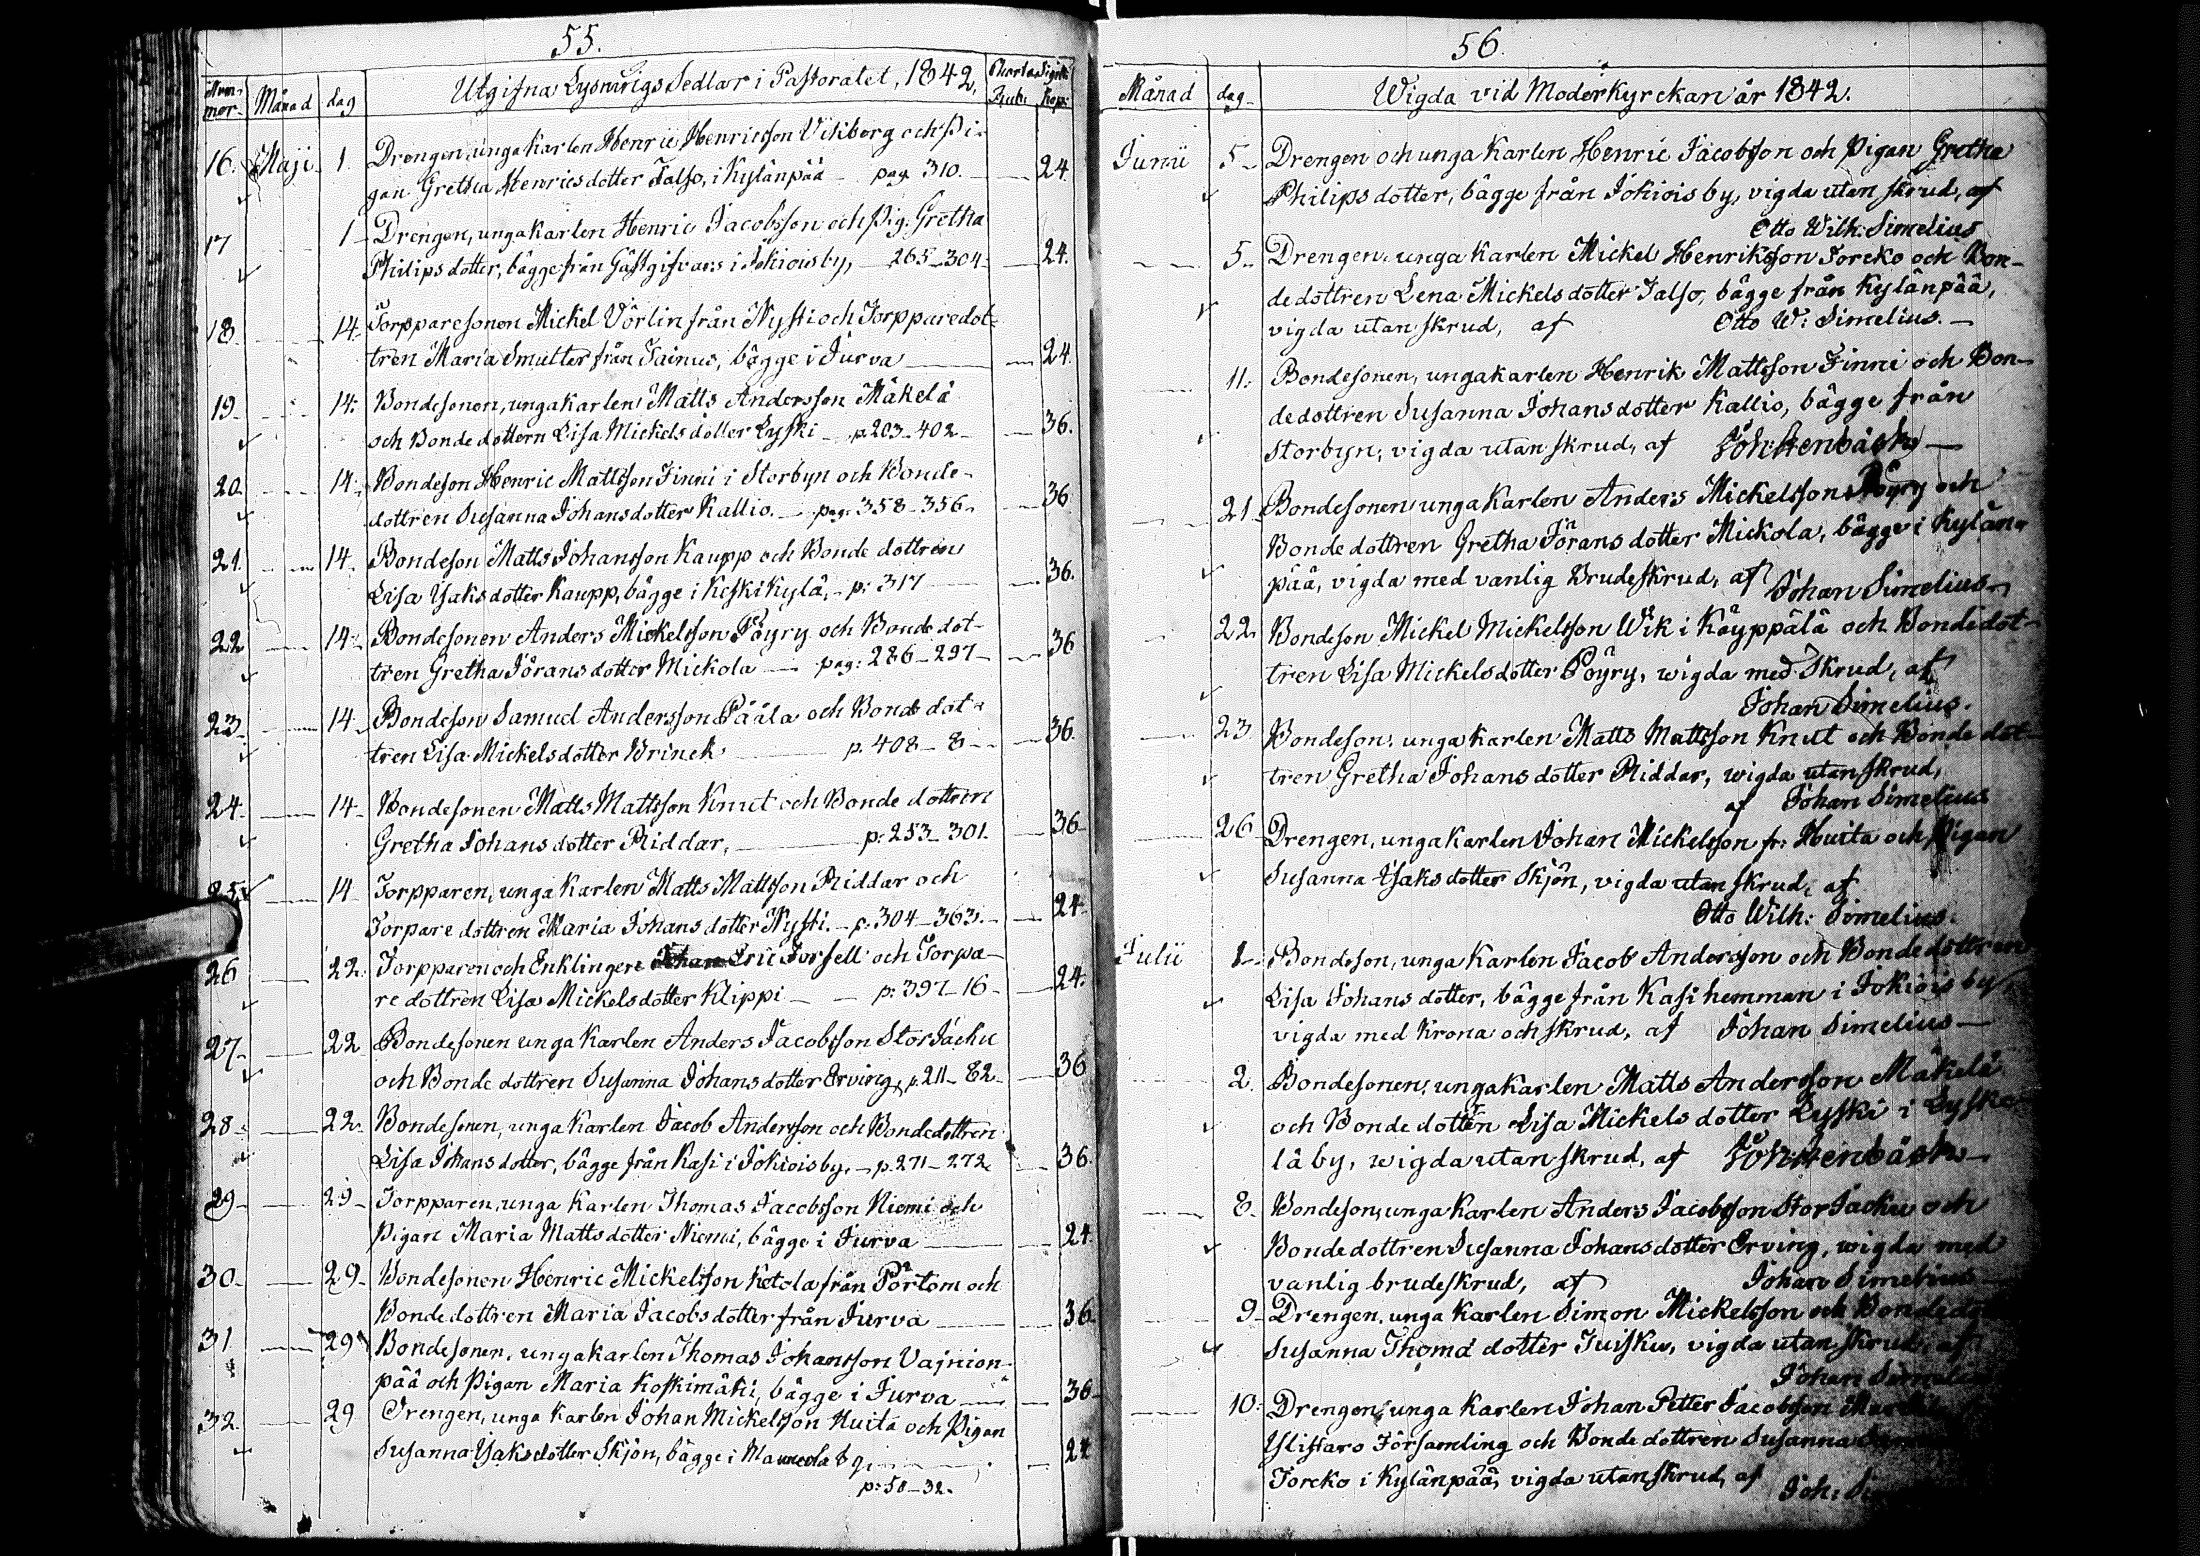 55.
Num-
mer. Månad dag Utgifna Lysnings Sedlar i Pastoratet, 1842. Charta Sigill:
Rub: Kop:
16. Maji 1. Drengen, unga karlen Henric Henricsson Vikberg och Pi-
gan Gretha Henricsdotter Talso, i Kylänpää pag. 310. 24.
17 1 Drengen, unga karlen Henric Jacobsson och Pig. Gretha
Philipsdotter, bägge från Gästgifvars i Jokioisby, 265-304- 24.
18. 14. Torpparesonen Mickel Vörlin från Nysti och Torpparedot-
tren Maria Smulter från Tainus, bägge i Jurva 24.
19. 14. Bondesonen, unga karlen Matts Andersson Mäkelä
och Bondedottern Lisa Mickelsdotter Lyski p. 203-402- 36.
20. 14. Bondeson Henric Mattsson Finni i Storbyn och Bonde-
dottren Susanna Johansdotter Kallio. pag: 358-356. 36
21. 14. Bondeson Matts Johansson Kaupp och Bonde dottren
Lisa Ysaksdotter Kaupp, bägge i Keskikylä, p: 317 36.
22 14. Bondesonen Anders Mickelsson Pöyry och Bonde dot-
tren Gretha Jöransdotter Mickola pag: 286-297- 36
23. 14. Bondeson Samuel Andersson Pääla och Bonde dot-
tren Lisa Mickelsdotter Brinck p. 408-8- 36.
24. 14. Bondesonen Matts Mattsson Knut och Bonde dottren
Gretha Johansdotter Riddar, p: 253-301. 36
25. 14 Torpparen, unga karlen Matts Mattsson Riddar och
Torpare dottren Maria Johansdotter Nysti. p: 304-363. 24.
26 22. Torpparen och Enklingen Johan Eric Forsell och Torpa-
re dottren Lisa Mickelsdotter Klippi p: 397-16- 24.
27. 22 Bondesonen unga karlen Anders Jacobsson StorJacku
och Bonde dottren Susanna Johansdotter Erving, p. 211-82- 36
28. 22. Bondesonen, unga karlen Jacob Andersson och Bondedottren
Lisa Johansdotter, bägge från Kasi i Jokioisby, p. 271-272. 36.
29. 29. Torpparen, unga karlen Thomas Jacobsson Niemi och
Pigan Maria Mattsdotter Niemi, bägge i Jurva 24.
30. 29. Bondesonen Henric Mickelsson Ketola från Pörtom och
Bonde dottren Maria Jacobsdotter från Jurva 36.
31 29. Bondesonen, unga karlen Thomas Johansson Vajnion-
pää och Pigan Maria Koskimäki, bägge i Jurva 36.
32. 29 Drengen, unga karlen Johan Mickelsson Huita och Pigan
Susanna Ysaksdotter Skjön, bägge i Maunula by. 24
p: 58-32.
56.
Månad dag Wigda vid Moderkyrckan år 1842.
Junii 5. Drengen och unga karlen Henric Jacobsson och Pigan Gretha
Philipsdotter, bägge från Jokiois by, vigda utan skrud, af
Otto Wilh: Simelius
5. Drengen, unga karlen Mickel Henriksson Torcko och Bon-
dedottren Lena Mickelsdotter Talso, bägge från Kylänpää,
vigda utan skrud, af Otto W: Simelius.
11. Bondesonen, unga karlen Henrik Mattsson Finni och Bon-
dedottren Susanna Johansdotter Kallio, bägge från
Storbyn, vigda utan skrud, af Joh: Stenbäck
21. Bondesonen unga karlen Anders Mickelsson Pöyry och
Bonde dottren Gretha Jörans dotter Mickola, bägge i Kylän-
pää, vigda med vanlig Brudeskrud, af Johan Simelius
22. Bondeson Mickel Mickelsson Wik i Köyppälä och Bondedot-
tren Lisa Mickelsdotter Pöyry, wigda med Skrud, af
Johan Simelius.
23 Bondeson, unga karlen Matts Mattsson Knut och Bonde dot-
tren Gretha Johansdotter Riddar, wigda utan skrud,
af Johan Simelius
26 Drengen, unga karlen Johan Mickelsson fr: Huita och Pigan
Susanna Ysaksdotter Skjön, vigda utan skrud, af
Otto Wilh: Simelius.
Julii 1. Bondeson, unga karlen Jacob Andersson och Bondedottren
Lisa Johansdotter, bägge från Kasi hemman i Jokiois by,
vigda med krona och skrud, af Johan Simelius
2. Bondesonen, unga karlen Matts Andersson Mäkelä
och Bonde dotten Lisa Mickels dotter Lyski i Lyski-
lä by, wigda utan skrud, af Joh: Stenbäck
8. Bondeson, unga karlen Anders Jacobsson StorJacku och
Bonde dottren Susanna Johansdotter Erving, wigda med
vanlig brudeskrud, af Johan Simelius
9. Drengen, unga karlen Simon Mickelsson och Bondedot
Susanna Thoma dotter Tuisku, vigda utan skrud, af
Johan Simelius
10. Drengen, unga karlen Johan Petter Jacobsson
Ylistaro Församling och Bonde dottren Susanna
Torcko i Kylänpää, vigda utan skrud, af Joh: